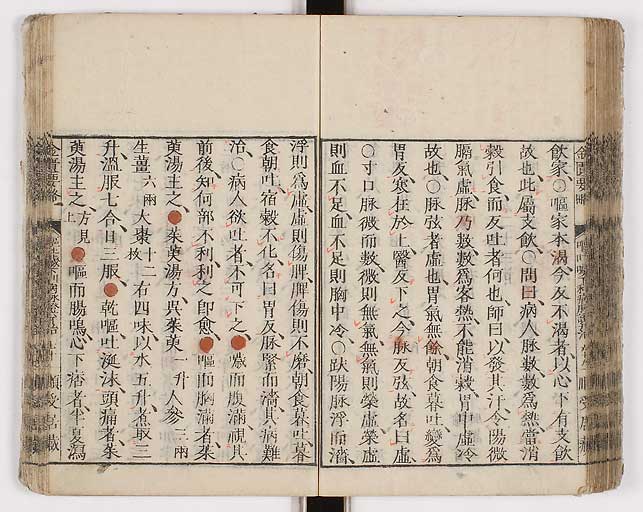 飲家〇嘔家本渴今反不渴者以心下有支飲
故也此屬支飲〇問曰病人脉數數爲熱當消
穀引食而反吐者何也師曰以發其汗令陽微
膈氣虛脉乃數數爲客熱不能消穀胃中虛冷
故也〇脉弦者虛也胃氣無餘朝食暮吐變爲
胃反寒在於上醫反下之今脉反弦故名曰虛
〇寸口脉微而數微則無氣無氣則榮虛榮虛
則血不足血不足則胸中冷〇趺陽脉浮而濇
浮則爲虛虛則傷脾脾傷則不磨朝食暮吐暮
食朝吐宿穀不化名曰胃反脉緊而濇其病難
治〇病人欲吐者不可下之●噦而腹滿視其
前後知何部不利利之即愈●嘔而胸滿者茱
萸湯主之●茱萸湯方吳茱萸一升人參三兩
生薑六兩大棗十二枚右四味以水五升煮取三
升溫服七合日三服●乾嘔吐涎沫頭痛者茱
萸湯主之方見上●嘔而腸鳴心下痞者半夏瀉
金匱要略